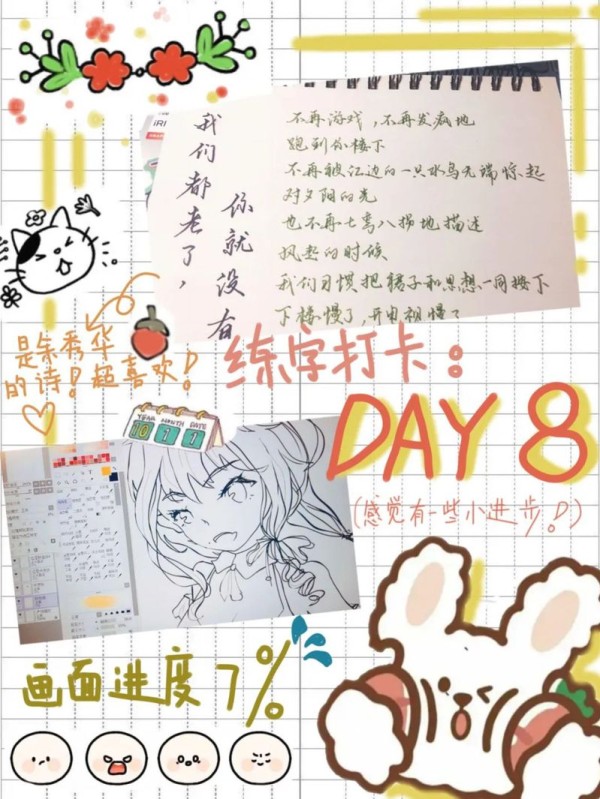 我们都老了，
你就没有
不再游戏，不再发疯地
跑到你楼下
不再被江边的一只水鸟无端惊起
对夕阳的光
也不再七八拐地描述
风的时候
我们习惯把裙子和思想一同按下
下楼慢了，开电视慢了
是余秀华
的诗！超喜欢！
练字打卡：
DAY 8
(感觉有一些小进步！)
YEAR MONTH DATE
10 1 1
画面进度7%